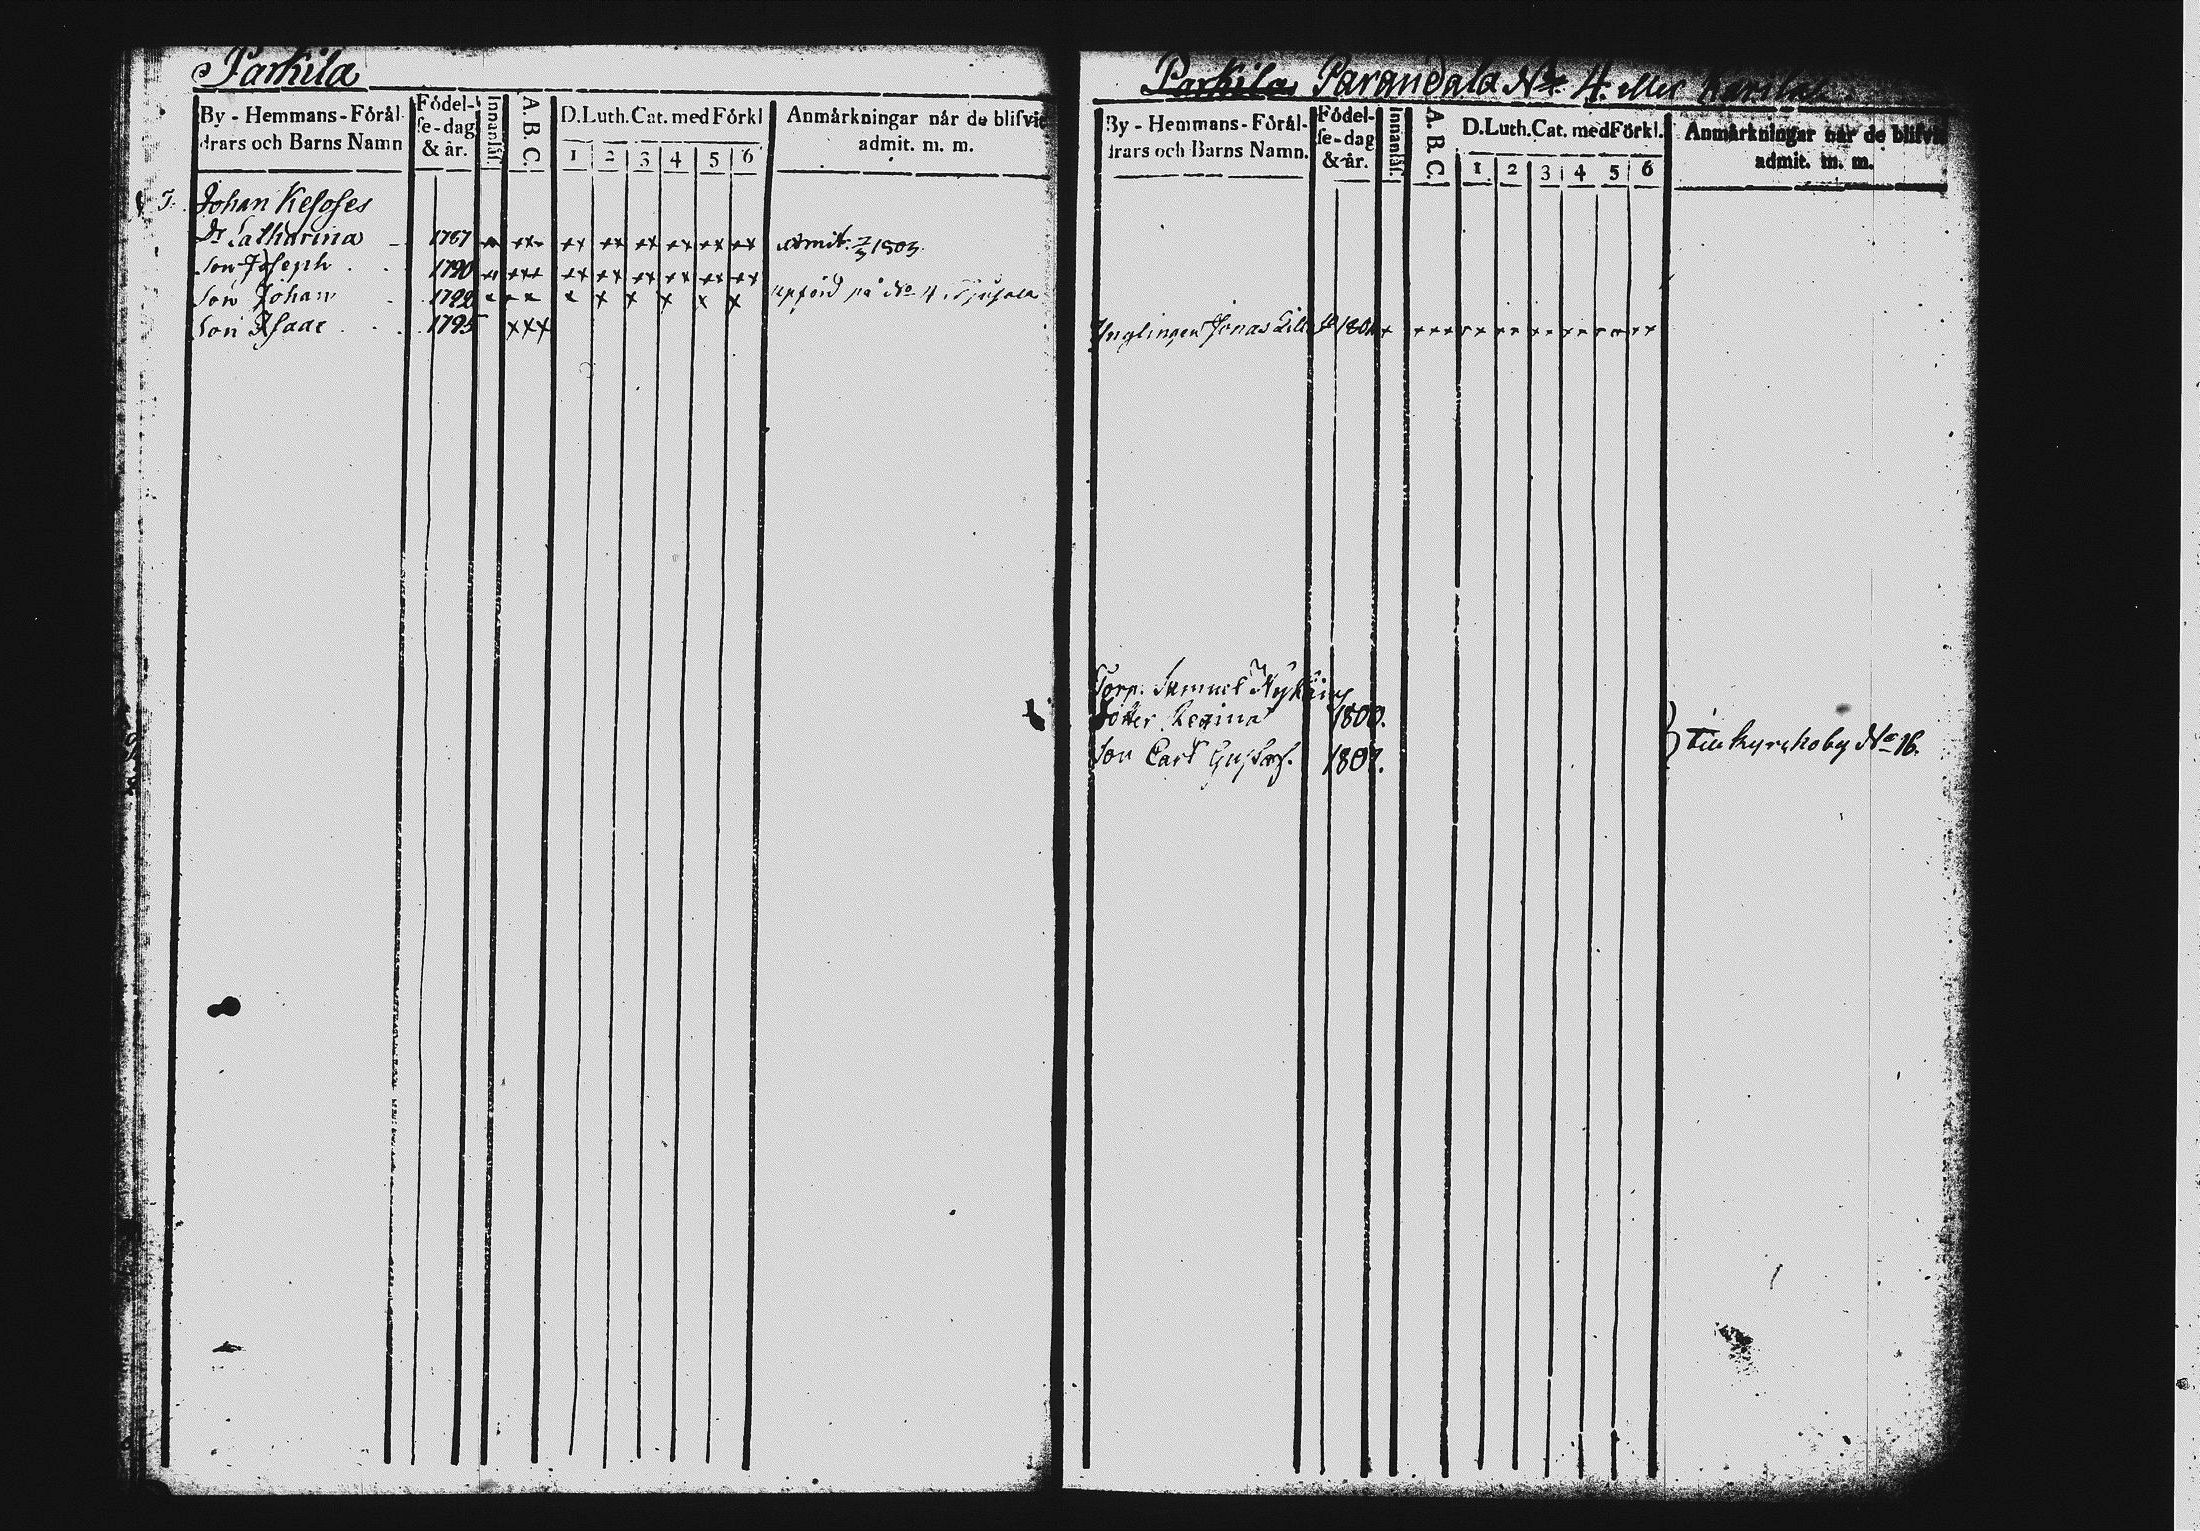 Parkila
By - Hemmans - Förål-
drars och Barns Namn
Födel-
se-dag
& år.
Innanläs.
A. B. C.
D. Luth. Cat. med Förkl
1 2 3 4 5 6
Anmärkningar når de blifvit
admit. m. m.
Johan
Dr Catharina 1787 xx xxx xx xx xx xx xx xx admit. 1803
Son Joseph 1790 xx xxx xx xx xx xx xx xx
Son Johan 1792 x x x x x x x x x på No 4
Son Isaac 1795 xxx
Parkila Parandala No 4. eller
By - Hemmans - Förål-
drars och Barns Namn.
Födel-
se-dag
& år.
Innanläs.
A. B. C.
D. Luth. Cat. med Förkl.
1 2 3 4 5 6
Anmärkningar når de blifvit
admit. m. m.
Ynglingen Jonas
Torp. Samuel
Dotter Regina 1800.
Son Carl Gustaf.
till Kyrckoby No 16.